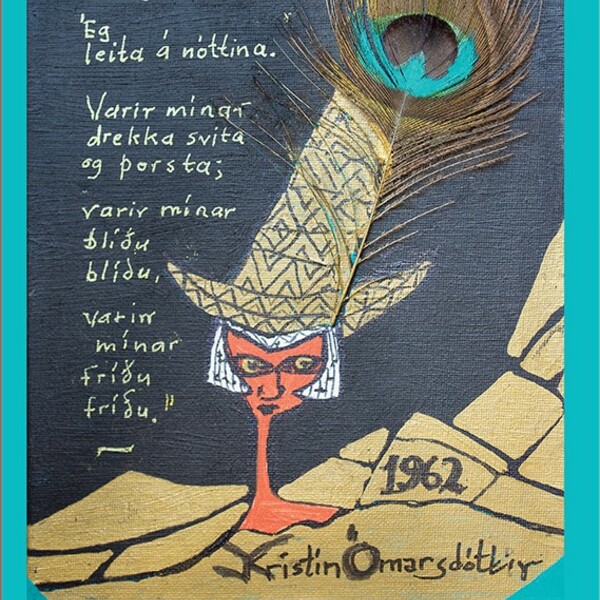 Ég
leita á nóttina.
Varir mínar
drekka svita
og þorsta;
varir mínar
blíðu
blíðu,
varir
mínar
fríðu
fríðu."
1962
Kristín Ömarsdóttir